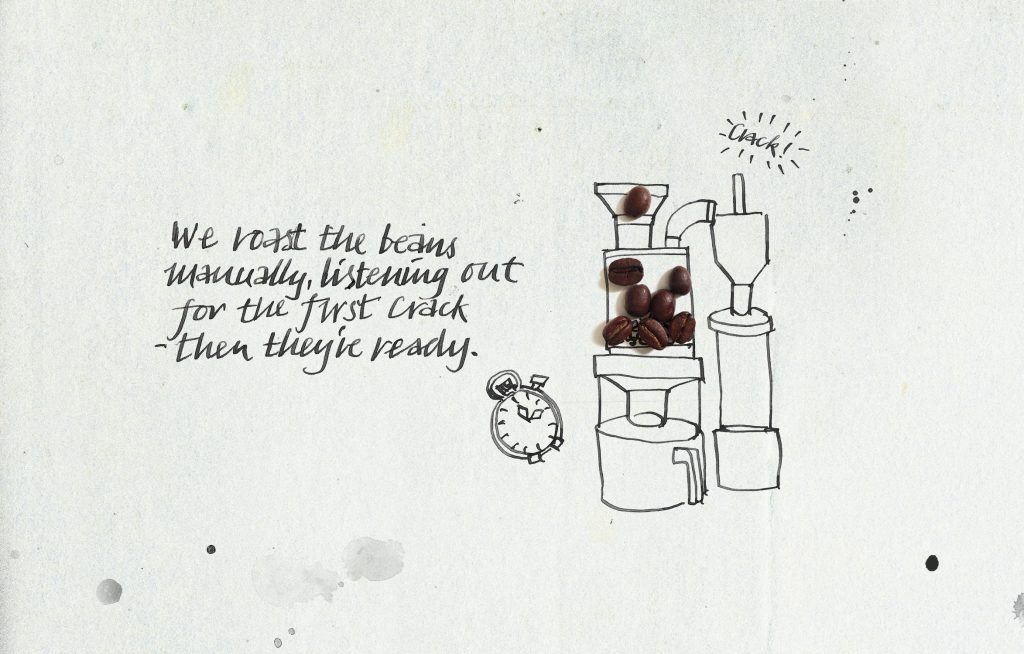 We roast the beans
manually, listening out
for the first crack
- then they're ready.
Crack!